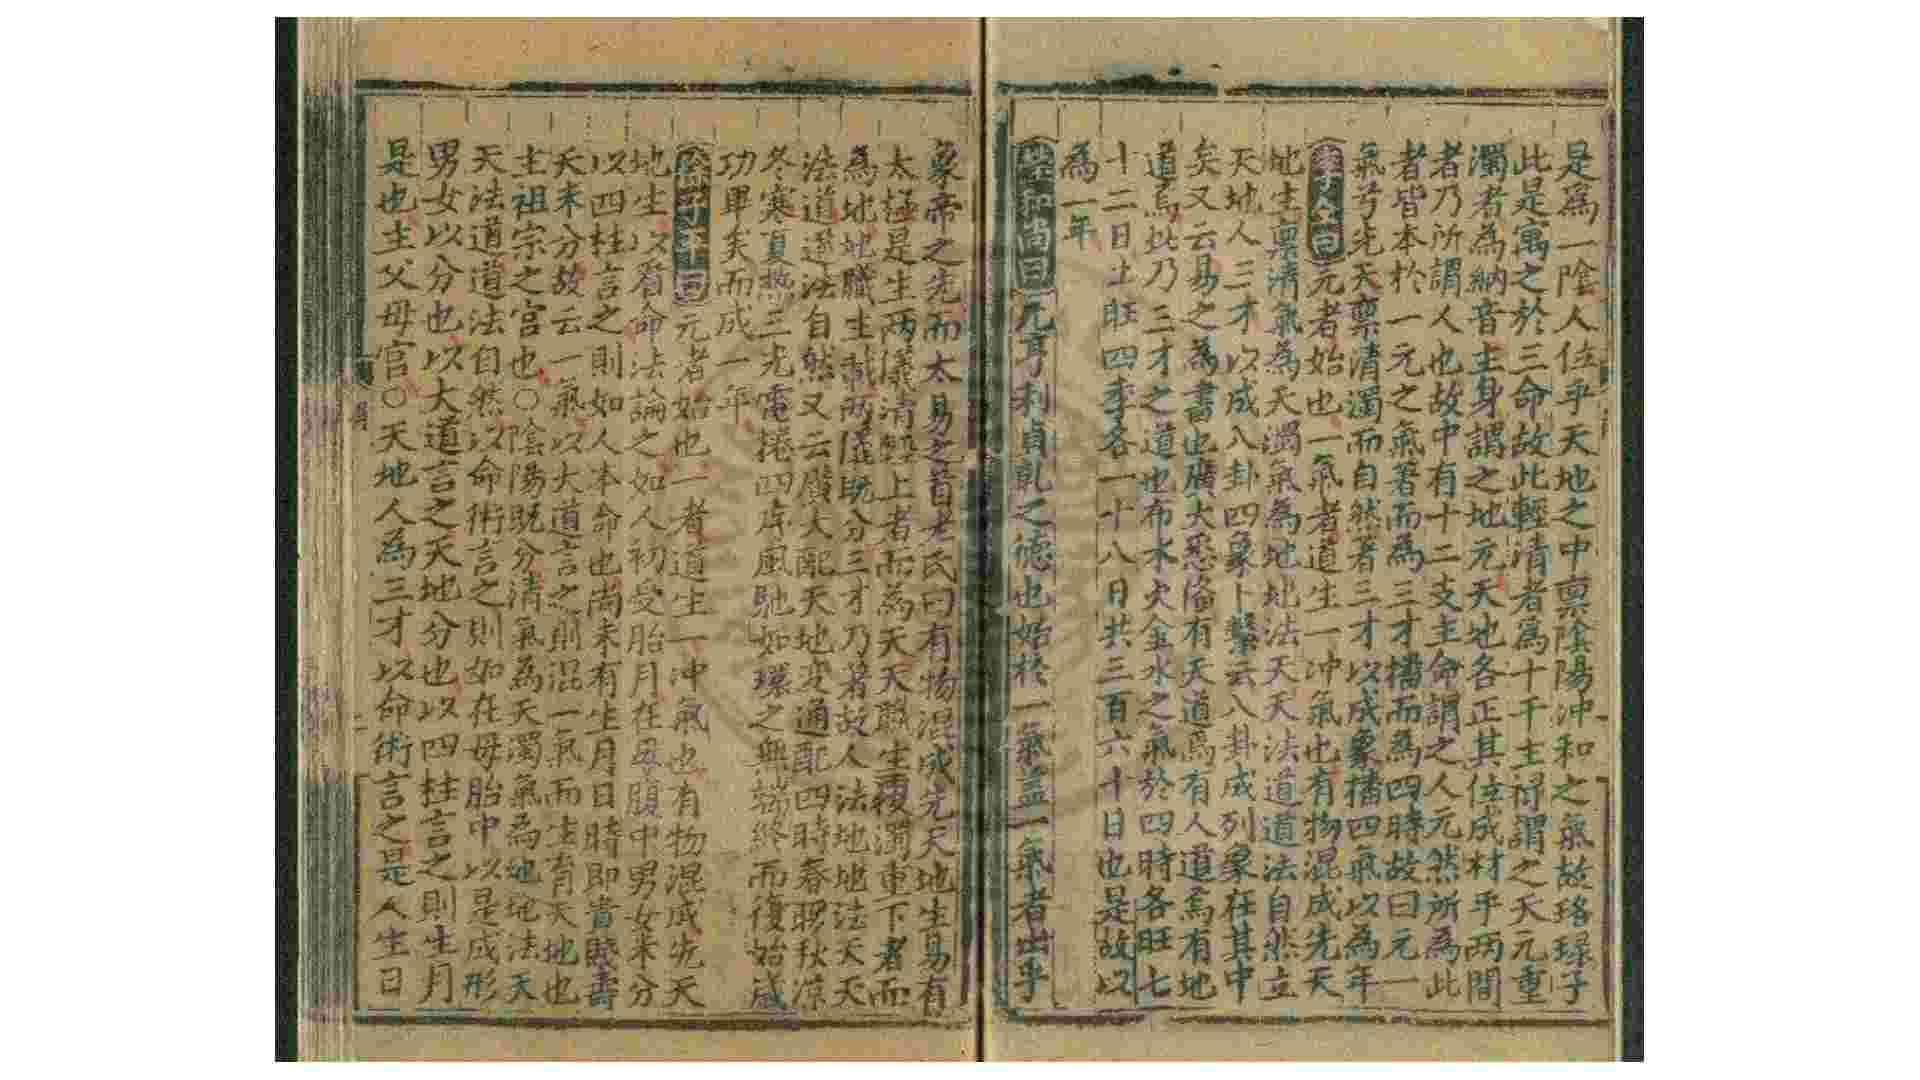 是爲一陰人位乎天地之中禀陰陽沖和之氣故珞琭子
此是寓之於三命故此輕清者爲十干主祿謂之天元重
濁者為納音主身謂之地元天地各正其位成材乎两間
者乃所謂人也故中有十二支主命謂之人元然所為此
者皆本於一元之氣著而為三才播而為四時故曰元一
氣兮先天禀清濁而自然著三才以成象播四氣以為年
李仝曰元者始也一氣者道生一沖氣也有物混成先天
地生禀清氣為天濁氣為地地法天天法道道法自然立
天地人三才以成八卦四象卜繫云八卦成列象在其中
矣又云易之為書也廣大悉俻有天道焉有人道焉有地
道焉此乃三才之道也布木火金水之氣於四時各旺七
十二日土旺四季各一十八日共三百六十日也是故以
為一年
瑩和尚曰元亨利貞乹之德也始於一氣盖一氣者出乎
象帝之先而太易之首老氏曰有物混成先天地生易有
太極是生两儀清輕上者而為天天職生覆濁重下者而
為地地職生載两儀既分三才乃著故人法地地法天天
法道道法自然又云廣大配天地变通配四時春暖秋凉
冬寒夏熱三光電捲四序風馳如環之無端終而復始歲
功畢矣而成一年
徐子平曰元者始也一者道生一沖氣也有物混成先天
地生以看命法論之如人初受胎月在母腹中男女未分
以四柱言之則如人本命也尚未有生月日時即貴賤壽
夭未分故云一氣以大道言之則混一氣而生育天地也
主祖宗之宫也○陰陽既分清氣為天濁氣為地地法天
天法道道法自然以命術言之則如在母胎中以是成形
男女以分也以大道言之天地分也以四柱言之則生月
是也主父母宫○天地人為三才以命術言之是人生日